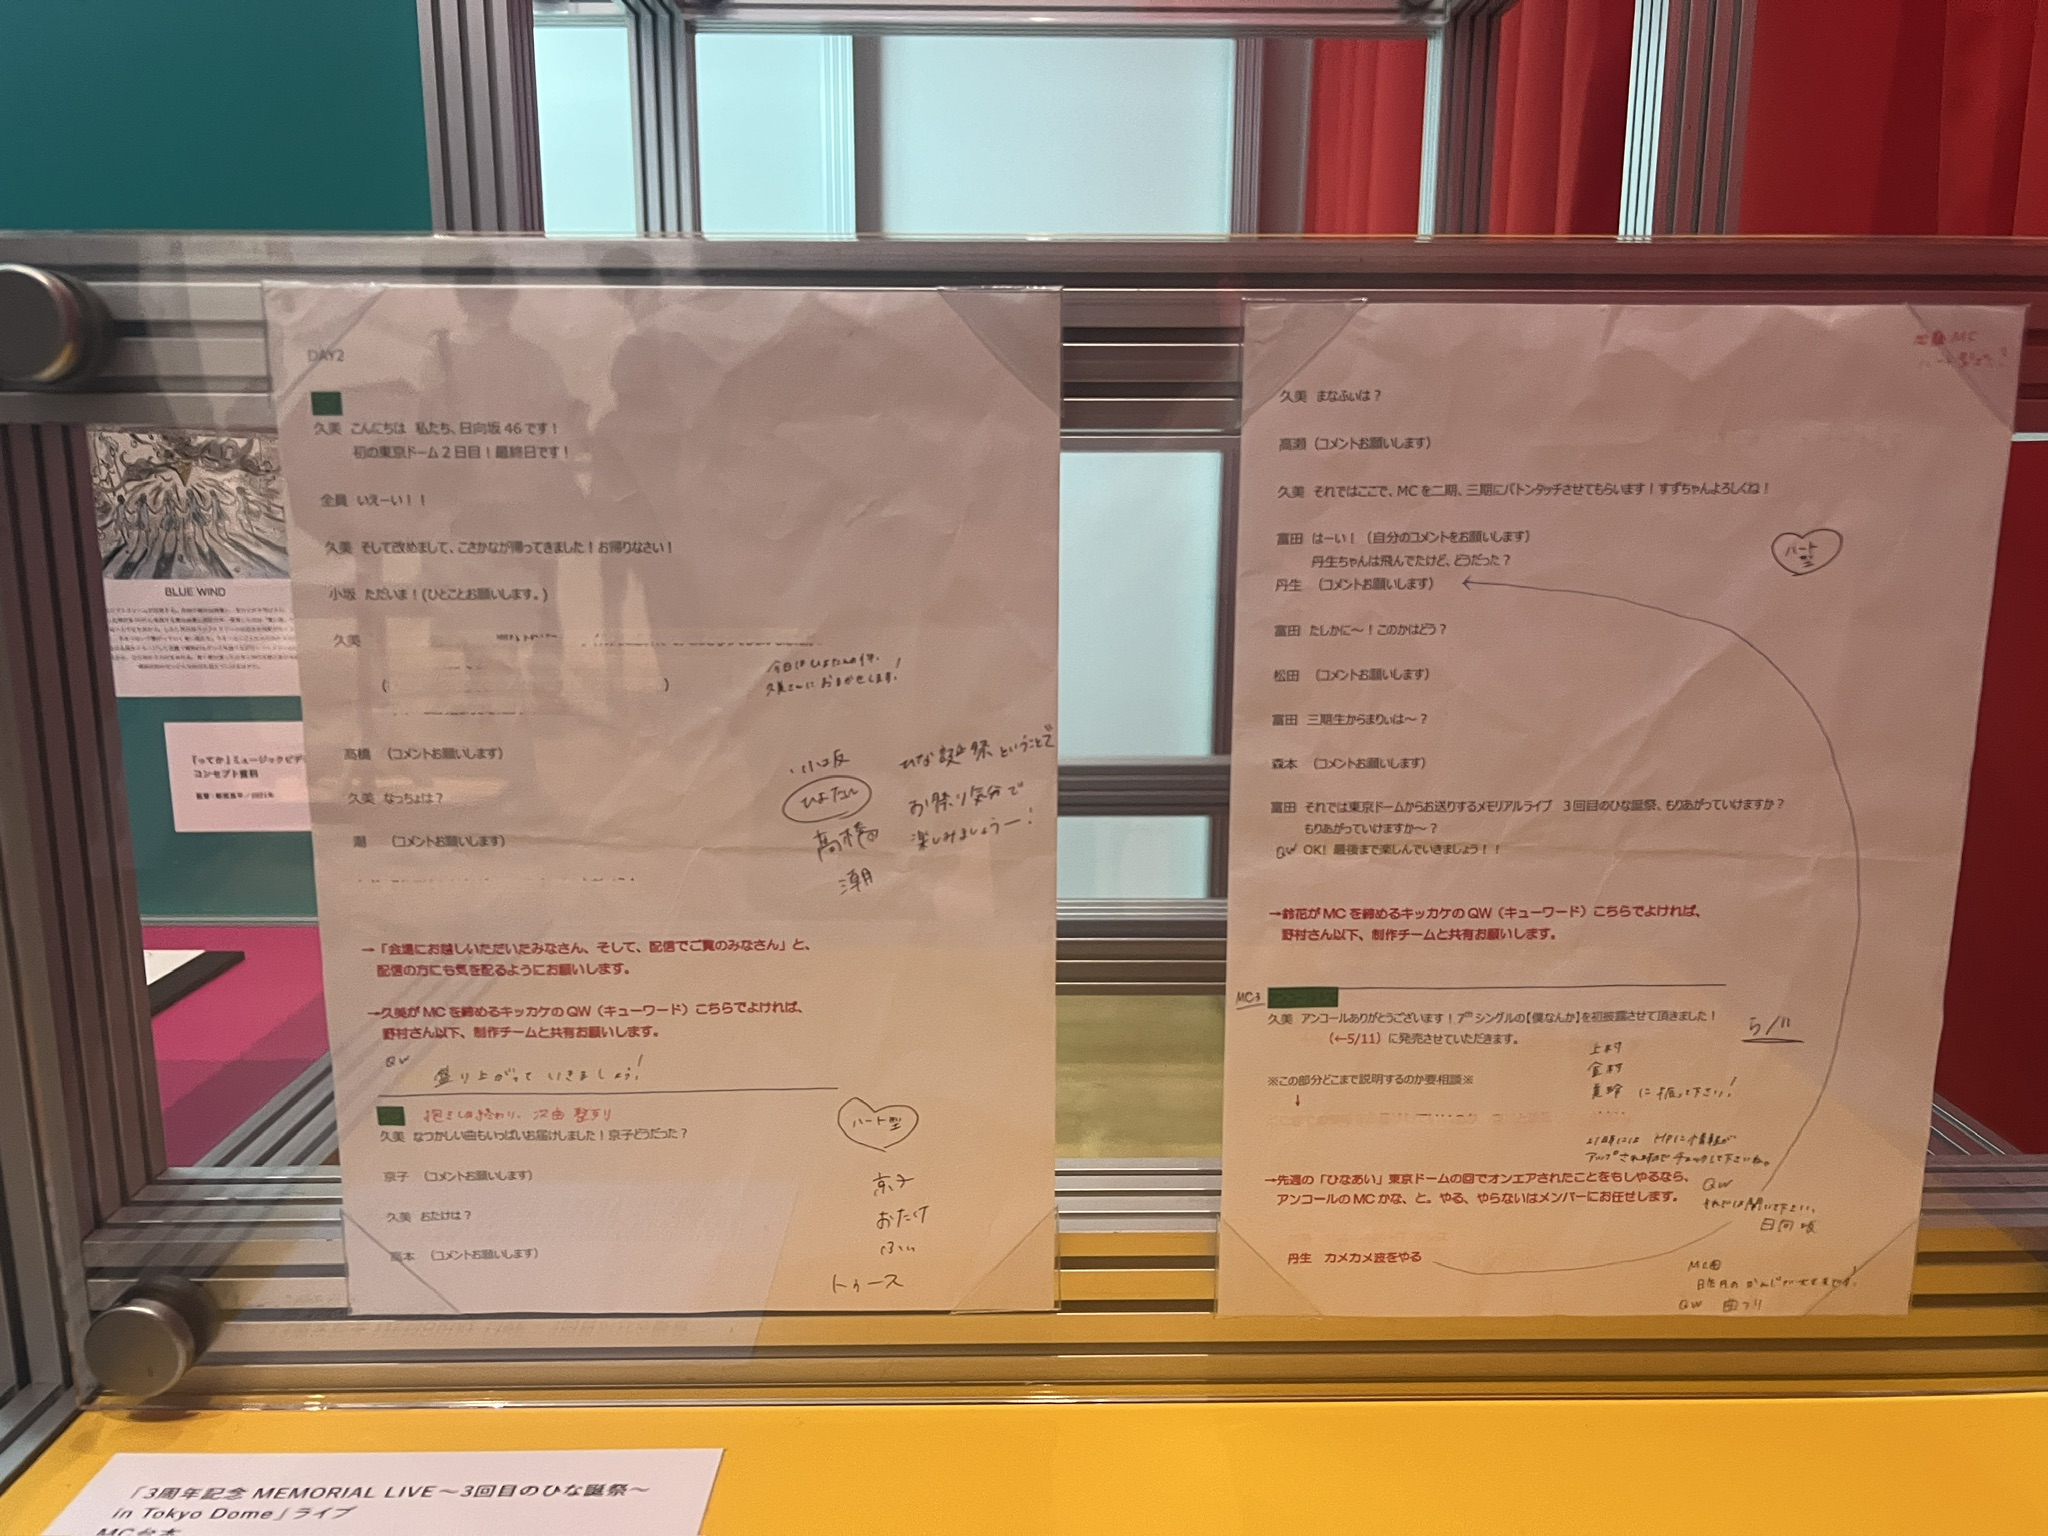 DAY2
久美 こんにちは 私たち、日向坂46です！
初の東京ドーム2日目！最終日です！
全員 いえーい！！
久美 そして改めまして、こさかなが帰ってきました！お帰りなさい！
小坂 ただいま！(ひとことお願いします。)
久美
今日はひよたんの件、
久美さんにおまかせします！
髙橋 （コメントお願いします）
久美 なっちょは？
潮 （コメントお願いします）
・小坂
ひよたん
高橋
潮
ひな誕祭ということで
お祭り気分で
楽しみましょうー！
→「会場にお越しいただいたみなさん、そして、配信でご覧のみなさん」と、
配信の方にも気を配るようにお願いします。
→久美がMCを締めるキッカケのQW（キューワード）こちらでよければ、
野村さん以下、制作チームと共有お願いします。
QW
盛り上がっていきましょう！
次曲
久美 なつかしい曲もいっぱいお届けしました！京子どうだった？
京子 （コメントお願いします）
久美 おたけは？
高本 （コメントお願いします）
ハート型
京子
おたけ
トゥース
MC
久美 まなふぃは？
高瀬（コメントお願いします）
久美 それではここで、MCを二期、三期にバトンタッチさせてもらいます！すずちゃんよろしくね！
富田 はーい！（自分のコメントをお願いします）
丹生ちゃんは飛んでたけど、どうだった？
丹生 （コメントお願いします）
ハート型
富田 たしかに～！このかはどう？
松田 （コメントお願いします）
富田 三期生からまりぃは～？
森本 （コメントお願いします）
富田 それでは東京ドームからお送りするメモリアルライブ 3回目のひな誕祭、もりあがっていけますか？
もりあがっていけますか～？
QW OK！最後まで楽しんでいきましょう！！
→鈴花がMCを締めるキッカケのQW（キューワード）こちらでよければ、
野村さん以下、制作チームと共有お願いします。
MC3
久美 アンコールありがとうございます！7thシングルの【僕なんか】を初披露させて頂きました！
（←5/11）に発売させていただきます。
5/11
上村
金村
美玲 に振って下さい！
※この部分どこまで説明するのか要相談※
↓
21時には HPに情報が
アップされるのでチェックして下さいね。
→先週の「ひなあい」東京ドームの回でオンエアされたことをもしやるなら、
アンコールのMCかな、と。やる、やらないはメンバーにお任せします。
QW
それでは聞いて下さい、
日向坂
丹生 カメカメ波をやる
QW 曲フリ
BLUE WIND
「ってか」ミュージックビデ
コンセプト資料
「3周年記念 MEMORIAL LIVE～3回目のひな誕祭～
in Tokyo Dome」ライブ
MC台本